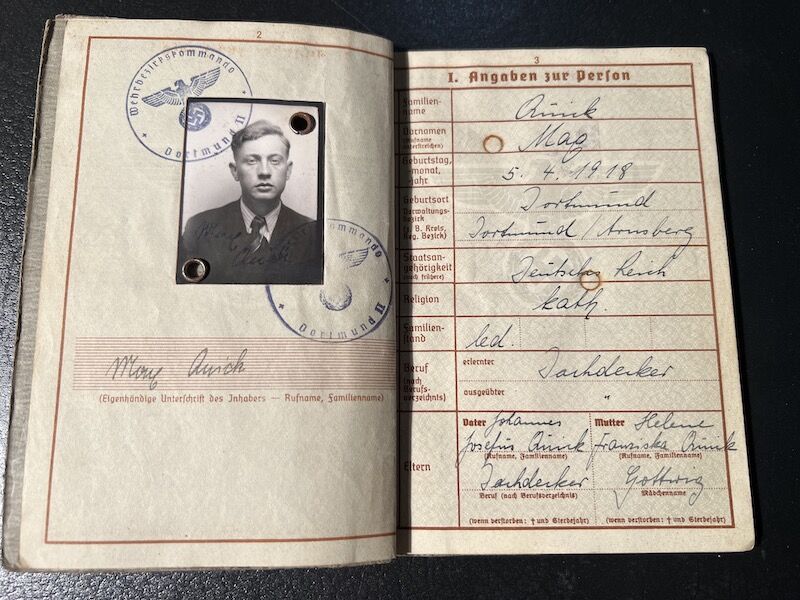 2
Wehrbezirkskommando
Dortmund II
kommando
Dortmund II
Max Quick
(Eigenhändige Unterschrift des Inhabers — Rufname, Familienname)
3
I. Angaben zur Person
Familien-
name
Quick
Vornamen
(Rufname
unterstreichen)
Max
Geburtstag,
-monat,
-jahr
5. 4. 1918
Geburtsort
Dortmund
Verwaltungs-
bezirk
(z. B. Kreis,
Reg. Bezirk)
Dortmund / Arnsberg
Staatsan-
gehörigkeit
(auch frühere)
Deutsches Reich
Religion
kath.
Familien-
stand
led.
Beruf
(nach
Berufs-
verzeichnis)
erlernter
Dachdecker
ausgeübter
"
Eltern
Vater Johannes
Josefus Quick
(Rufname, Familienname)
Dachdecker
Beruf (nach Berufsverzeichnis)
(wenn verstorben: † und Sterbejahr)
Mutter Helene
Franziska Quick
(Rufname, Familienname)
Mädchenname
(wenn verstorben: † und Sterbejahr)